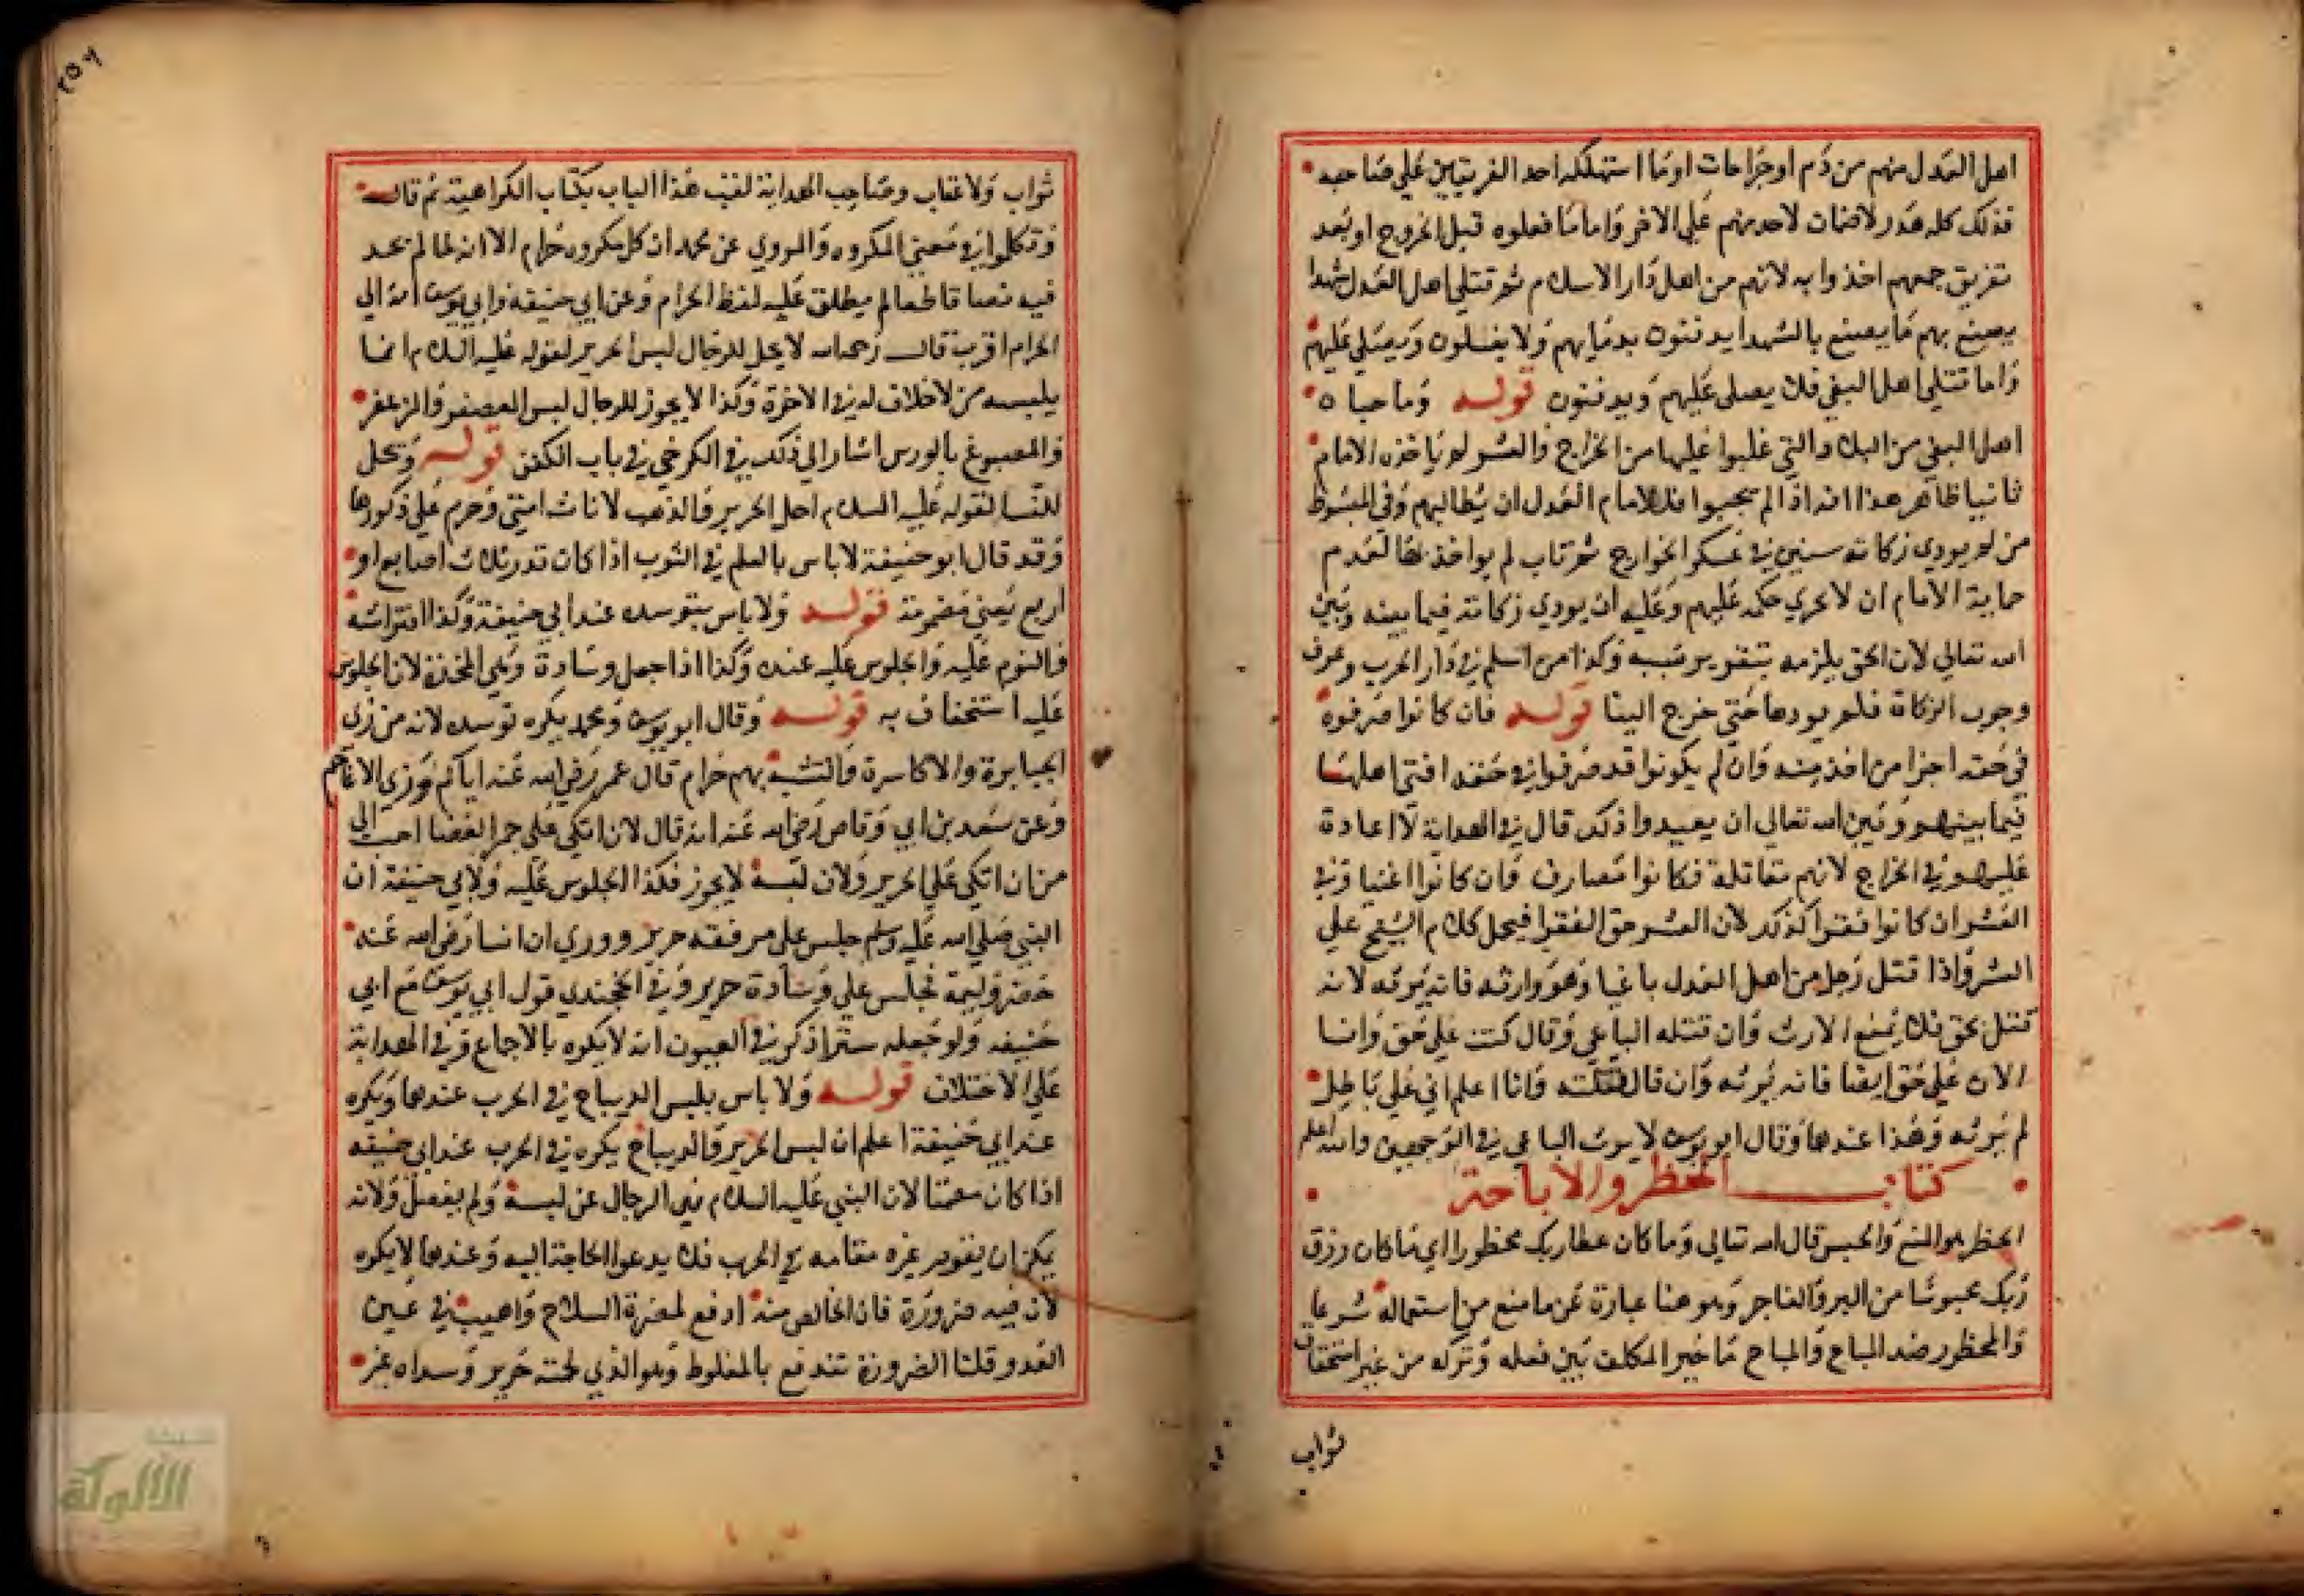 اهل العدل منهم من دم او جراحات او ما استهلكه احد الفريقين على صاحبه
فذلك كله هدر لا ضمان لاحد منهم على الاخر واما ما فعلوه قبل الخروج او بعد
تفريق جمعهم اخذوا به لانهم من اهل دار الاسلام ثم قتلى اهل العدل شهدا
يصنع بهم ما يصنع بالشهدا يدفنون بدمايهم ولا يغسلون ويصلى عليهم
واما قتلى اهل البغي فلا يصلى عليهم ويدفنون قوله وما جباه
اهل البغي من البلاد التي غلبوا عليها من الخراج والعشر لم ياخذه الامام
ثانيا ظاهر هذا انه اذا لم يجبوا فللامام العدل ان يطالبهم وفي المبسوط
من لم يودي زكاته سنين في عسكر الخوارج ثم تاب لم يواخذ بها لعدم
حماية الامام ان لا يجري حكمه عليهم وعليه ان يودي زكاته فيما بينه وبين
الله تعالى لان الحق يلزمه بتقرير سببه وكذا من اسلم في دار الحرب وعرف
وجوب الزكاة فلم يودها حتى خرج الينا قوله فان كانوا صرفوه
في حقه اجزا من اخذ منه وان لم يكونوا قد صرفوا في حقه افتى اهلها
فيما بينهم وبين الله تعالى ان يعيدوا ذلك قال في الهداية لا اعادة
عليهم في الخراج لانهم مقاتلة فكانوا مصارف وان كانوا اغنيا وفي
العشر ان كانوا فقرا كذلك لان العشر حق الفقرا فيحمل كلام الشيخ على
العشر واذا قتل رجل من اهل العدل باغيا وهو وارثه فانه يرثه لانه
قتل بحق فلا يمنع الارث وان قتله الباغي وقال كنت على حق وانا
الان على حق ايضا فانه يرثه وان قال قتلته وانا اعلم اني على باطل
لم يرثه وهذا عندهما وقال ابو يوسف لا يرث الباغي في الوجهين والله اعلم
كتاب الحظر والاباحة
الحظر هو المنع والحبس قال الله تعالى وما كان عطا ربك محظورا اي ما كان رزق
ربك محبوسا من البر والفاجر وهو هنا عبارة عن ما منع من استعماله شرعا
والمحظور ضد المباح والمباح ما خير المكلف بين فعله وتركه من غير استحقاق
ثواب
٢٥٦
ثواب ولا عقاب وصاحب الهداية لقب هذا الباب بكتاب الكراهية ثم قال
وتكلموا في معنى المكروه والمروي عن محمد ان كل مكروه حرام الا انه لما لم يجد
فيه نصا قاطعا لم يطلق عليه لفظ الحرام وعن ابي حنيفة وابي يوسف انه الى
الحرام اقرب قال رحمه الله لا يحل للرجال لبس الحرير لقوله عليه السلام انما
يلبسه من لا خلاق له في الاخرة وكذا لا يجوز للرجال لبس المعصفر والمزعفر
والمصبوغ بالورس اشار الى ذلك في الكرخي في باب الكفن قوله ويحل
للنسا لقوله عليه السلام احل الحرير والذهب لاناث امتي وحرم على ذكورها
وقد قال ابو حنيفة لا باس بالعلم في الثوب اذا كان قدر ثلاث اصابع او
اربع يعني مضمومة قوله ولا باس بتوسده عند ابي حنيفة وكذا افتراشه
والنوم عليه والجلوس عليه عنده وكذا اذا جعل وسادة وهي المخدة لان الجلوس
عليه استخفاف به قوله وقال ابو يوسف ومحمد يكره توسده لانه من زي
الجبابرة والاكاسرة والتشبه بهم حرام قال عمر رضي الله عنه اياكم وزي الاعاجم
وعن سعد بن ابي وقاص رضي الله عنه انه قال لان اتكي على جمر الغضا احب الي
من ان اتكي على الحرير ولان لبسه لا يجوز فكذا الجلوس عليه ولابي حنيفة ان
النبي صلى الله عليه وسلم جلس على مرفقة حرير وروي ان انسا رضي الله عنه
حضر وليمة فجلس على وسادة حرير وفي الخجندي قول ابي يوسف مع ابي
حنيفه ولو جعله سترا ذكر في العيون انه لا يكره بالاجماع وفي الهداية
على الاختلاف قوله ولا باس بلبس الديباج في الحرب عندهما ويكره
عند ابي حنيفة اعلم ان لبس الحرير والديباج يكره في الحرب عند ابي حنيفه
اذا كان مصمتا لان النبي عليه السلام نهى الرجال عن لبسه ولم يفصل ولانه
يمكن ان يقوم غيره مقامه في الحرب فلا يدعو الحاجة اليه وعندهما لا يكره
لان فيه ضرورة فان الخالص منه ادفع لمضرة السلاح واهيب في عين
العدو قلنا الضرورة تندفع بالمخلوط وهو الذي لحمته حرير وسداه غير
الألوكة